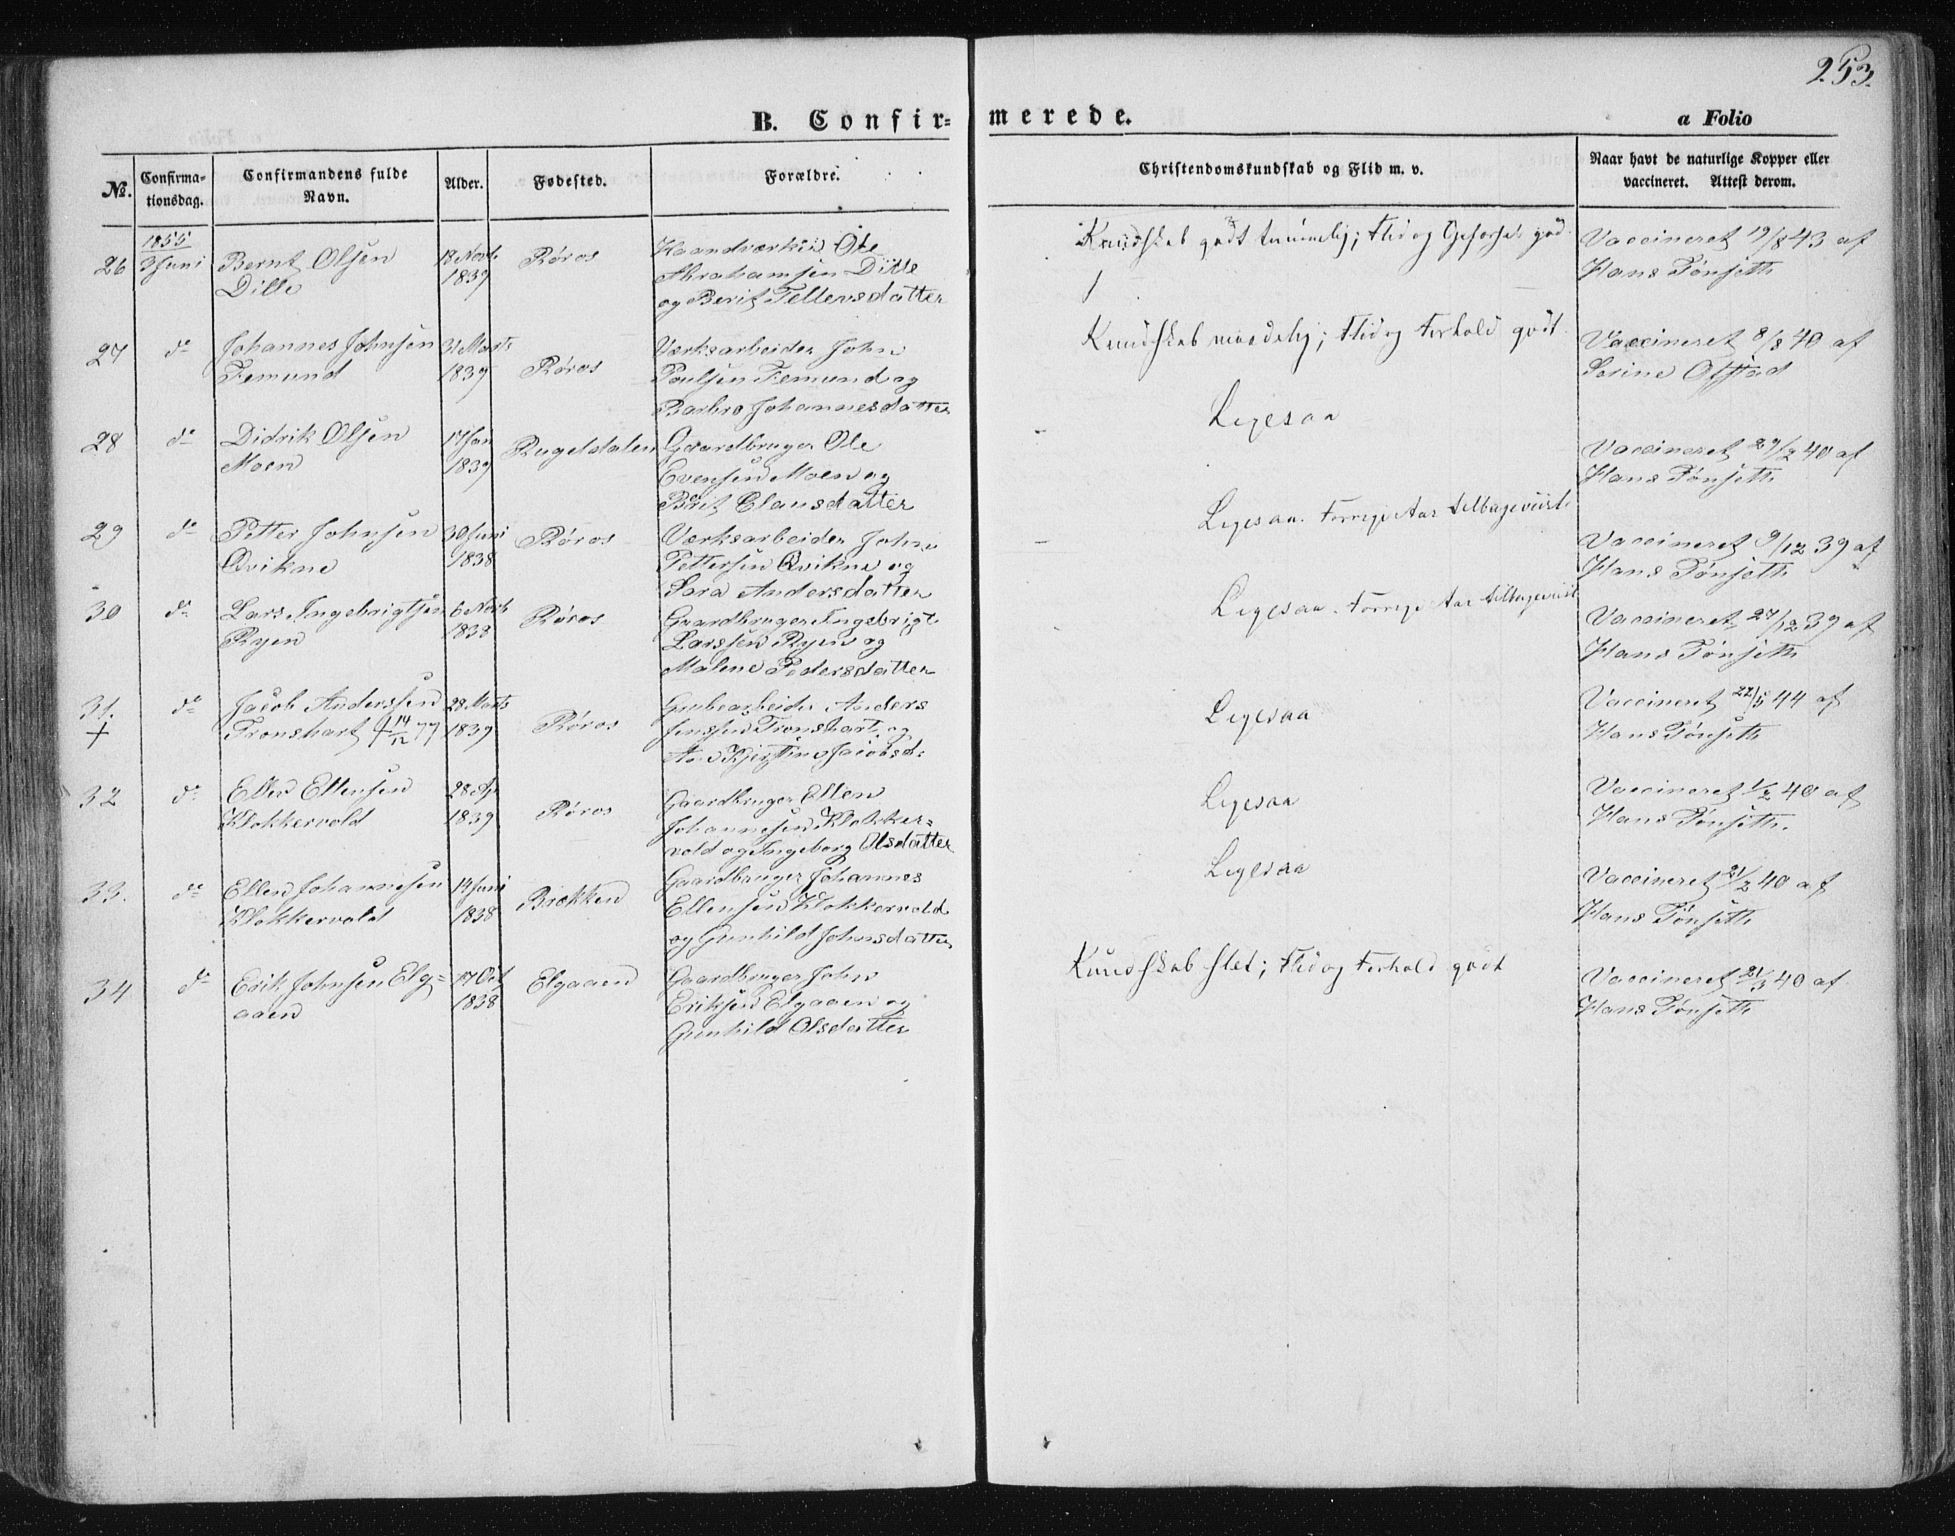 253.
B. Confir-merede.
a Folio
No.
Confirma-
tionsdag.
Confirmandens fulde
Navn.
Alder.
Fødested.
Forældre.
Christendomskundskab og Flid m. v.
Naar havt de naturlige Kopper eller
vaccineret. Attest derom.
1855
26 3 Juni Bernt Olsen 18 Novb Røros Haandværker Ole Kundskab godt temmelig; Flid og god Vaccineret 19/8 43 af
Dille 1839 Abrahamsen Dille Hans Tønseth
og Berit Tellevsdatter
27 do Johannes Johnsen 31 Marts Røros Værksarbeider John Kundskab maadelig; Flid og Forhold godt. Vaccineret 8/8 40 af
Femund 1839 Poulsen Femund og Serine Ofstad
Barbro Johannesdatter
28 do Didrik Olsen 17 Jan Rugeldalen Gaardbruger Ole Ligesaa Vaccineret 29/2 40 af
Moen 1839 Evensen Moen og Hans Tønseth
Berit Clausdatter
29 do Petter Johnsen 30 Juni Røros Værksarbeider John Ligesaa. Forrige Aar tilbageviist. Vaccineret 9/12 39 af
Qvikne 1838 Pettersen Qvikne og Hans Tønseth
Sara Andersdatter
30 do Lars Ingebrigtsen 6 Novb Røros Gaardbruger Ingebrigt Ligesaa. Forrige Aar tilbageviist Vaccineret 27/12 39 af
Ryen 1838 Larssen Ryen og Hans Tønseth
Malene Pedersdatter
31. do Jacob Anderssen 28 Marts Røros Grubearbeider Anders Ligesaa Vaccineret 22/5 44 af
† Tronshart † 14/12 77 1839 Jenssen Tronshart og Hans Tønseth
Kjerstine Jacobsd.
32 do Ellen Ellensen 28 Ap Røros Gaardbruger Ellen Ligesaa Vaccineret 1/2 40 af
Klokkervold 1839 Johannesen Klokker- Hans Tønseth.
vold og Ingeborg Olsdatter
33. do Ellen Johannesen 14 Juni Brækken Gaardbruger Johannes Ligesaa Vaccineret 21/2 40 af
Klokkervold 1838 Ellensen Klokkervold Hans Tønseth
og Gunhild Johnsdatter
34 do Erik Johnsen Elg- 17 Oct Elgaaen Gaardbruger John Kundskab slet; Flid og Forhold godt Vaccineret 21/3 40 af
aaen 1838 Eriksen Elgaaen og Hans Tønseth
Gunhild Olsdatter